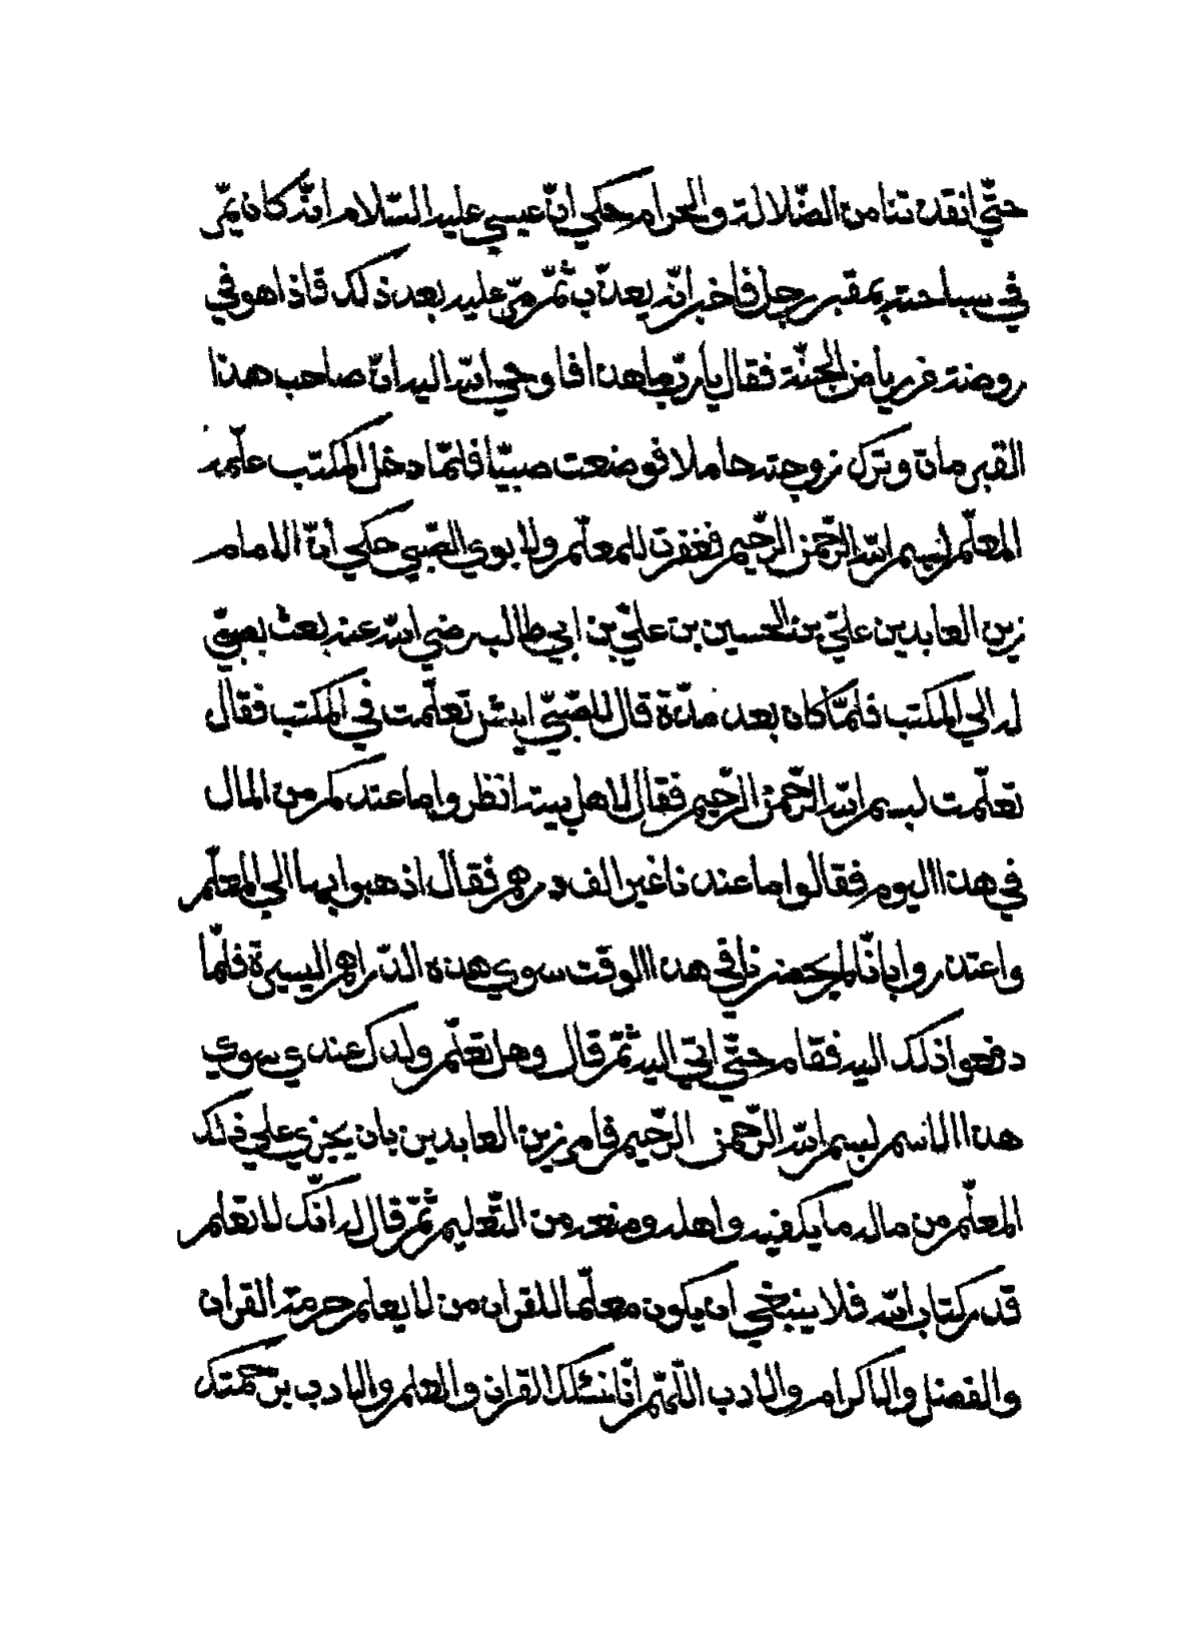 حتّي انقدتنا من الضّلالة والحرام حكي انّ عيسي عليه السّلام انّه كان يمّر
في سياحته بمقبر رجل فاخبر انّه يعذّب ثمّ مرّ عليه بعد ذلك فاذا هو في
روضة غررياض الجنّة فقال يا ربّ ما هذا فاوحي الله اليه انّ صاحب هذا
القبر مات وترك زوجته حاملا فوضعت صبيّا فلمّا دخل المكتب علّمه
المعلّم لبسم الله الرّحمن الرّحيم فغفرت للمعلّم ولابوي الصّبي حكي انّ الامام
زين العابدين عليّ بن الحسين بن عليّ بن ابي طالب رضي الله عنه بعث بصبيّ
له الي المكتب فلمّا كان بعد مدّة قال للصّبيّ ايش تعلّمت في المكتب فقال
تعلّمت لبسم الله الرّحمن الرّحيم فقال لاهل بيته انظروا ما عندكم من المال
في هذا اليوم فقالوا ما عندنا غير الف درهم فقال اذهبوا بها الي المعلّم
واعتذروا بانّا لم يحضرنا في هذا الوقت سوي هذه الدّراهم اليسيرة فلمّا
دفعوا ذلك اليه فقام حتّي اتي اليه ثمّ قال وهل تعلّم ولدك عندي سوي
هذا الاسم لبسم الله الرّحمن الرّحيم فامر زين العابدين بان يجزي علي ذلك
المعلّم من ماله ما يكفيه واهله ومنعه من التّعليم ثمّ قال له انّك لا تعلم
قدر كتاب الله فلا ينبغي ان يكون معلّما للقران من لا يعلم حرمة القران
والفضل والاكرام والادب اللّهمّ انّا نسئلك القران والعلم والادب برحمتك